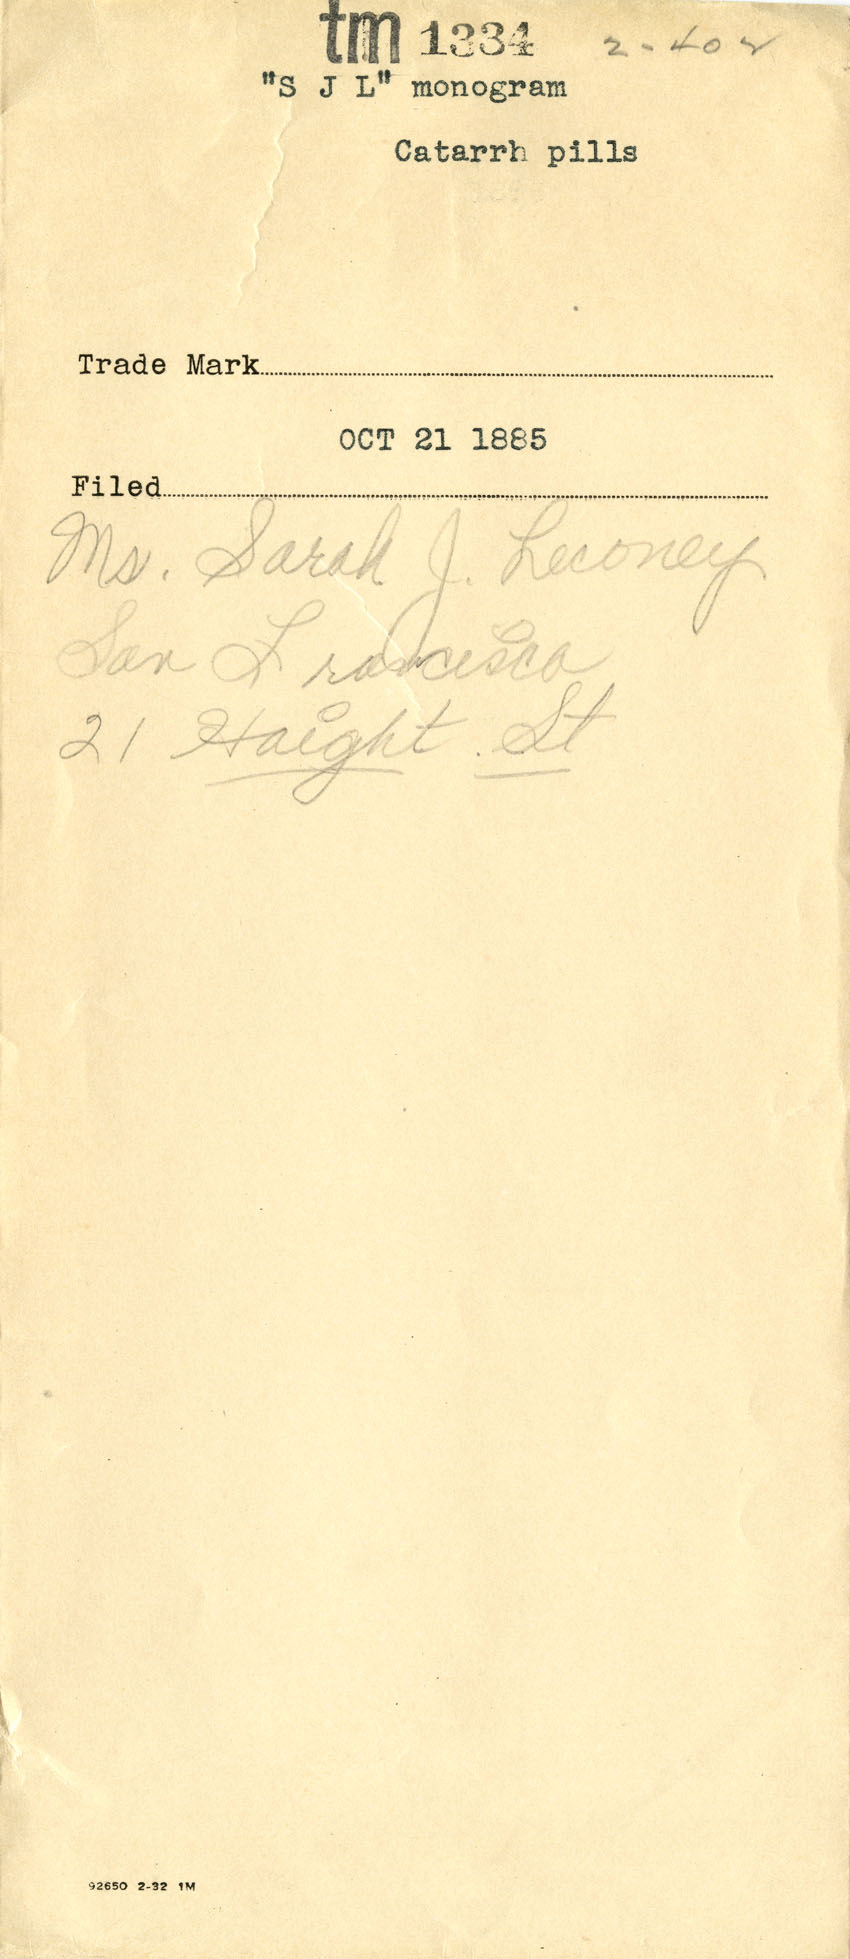 tm 1334 2-402
"S J L" monogram
Catarrh pills
Trade Mark
OCT 21 1885
Filed
Ms. Sarah J. Leconey
San Francisco
21 Haight St
92650 2-32 1M